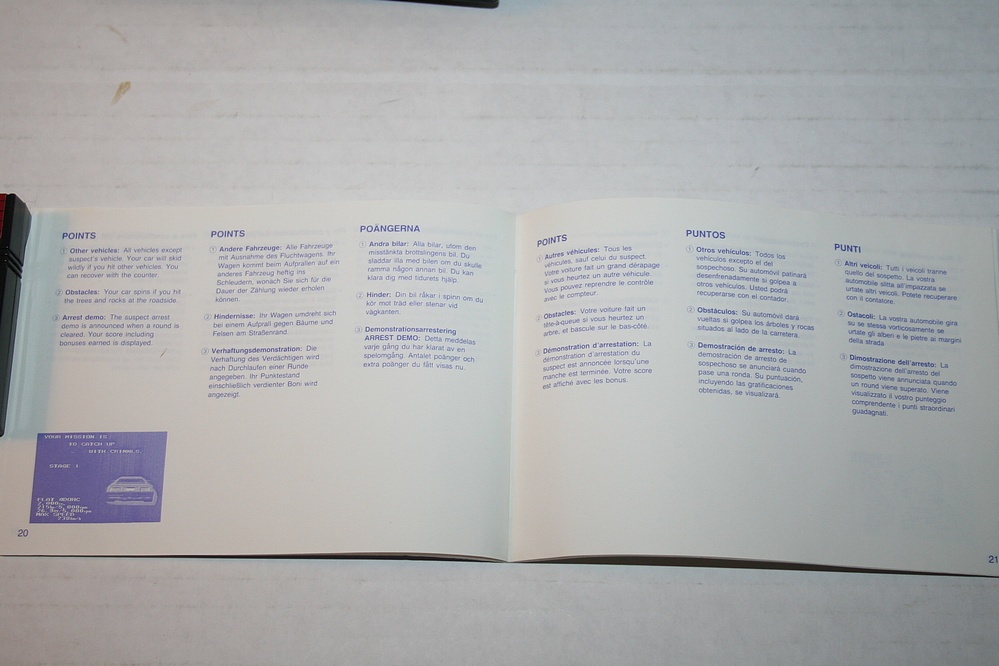 POINTS
① Other vehicles: All vehicles except
suspect's vehicle. Your car will skid
wildly if you hit other vehicles. You
can recover with the counter.
② Obstacles: Your car spins if you hit
the trees and rocks at the roadside.
③ Arrest demo: The suspect arrest
demo is announced when a round is
cleared. Your score including
bonuses earned is displayed.
YOUR MISSION IS
TO CATCH UP
WITH CRIMNLS.
STAGE 1
MAX SPEED
20
POINTS
① Andere Fahrzeuge: Alle Fahrzeuge
mit Ausnahme des Fluchtwagens. Ihr
Wagen kommt beim Aufprallen auf ein
anderes Fahrzeug heftig ins
Schleudern, wonach Sie sich für die
Dauer der Zählung wieder erholen
können.
② Hindernisse: Ihr Wagen umdreht sich
bei einem Aufprall gegen Bäume und
Felsen am Straßenrand.
③ Verhaftungsdemonstration: Die
Verhaftung des Verdächtigen wird
nach Durchlaufen einer Runde
angegeben. Ihr Punktestand
einschließlich verdienter Boni wird
angezeigt.
POÄNGERNA
① Andra bilar: Alla bilar, utom den
misstänkta brottslingens bil. Du
sladdar illa med bilen om du skulle
ramma någon annan bil. Du kan
klara dig med tidurets hjälp.
② Hinder: Din bil råkar i spinn om du
kör mot träd eller stenar vid
vägkanten.
③ Demonstrationsarrestering
ARREST DEMO: Detta meddelas
varje gång du har klarat av en
spelomgång. Antalet poänger och
extra poänger du fått visas nu.
POINTS
① Autres véhicules: Tous les
véhicules, sauf celui du suspect.
Votre voiture fait un grand dérapage
si vous heurtez un autre véhicule.
Vous pouvez reprendre le contrôle
avec le compteur.
② Obstacles: Votre voiture fait un
tête-à-queue si vous heurtez un
arbre, et bascule sur le bas-côté.
③ Démonstration d'arrestation: La
démonstration d'arrestation du
suspect est annoncée lorsqu'une
manche est terminée. Votre score
est affiché avec les bonus.
PUNTOS
① Otros vehículos: Todos los
vehículos excepto el del
sospechoso. Su automóvil patinará
desenfrenadamente si golpea a
otros vehículos. Usted podrá
recuperarse con el contador.
② Obstáculos: Su automóvil dará
vueltas si golpea los árboles y rocas
situados al lado de la carretera.
③ Demostración de arresto: La
demostración de arresto de
sospechoso se anunciará cuando
pase una ronda. Su puntuación,
incluyendo las gratificaciones
obtenidas, se visualizará.
PUNTI
① Altri veicoli: Tutti i veicoli tranne
quello del sospetto. La vostra
automobile slitta all'impazzata se
urtate altri veicoli. Potete recuperare
con il contatore.
② Ostacoli: La vostra automobile gira
su se stessa vorticosamente se
urtate gli alberi e le pietre ai margini
della strada.
③ Dimostrazione dell'arresto: La
dimostrazione dell'arresto del
sospetto viene annunciata quando
un round viene superato. Viene
visualizzato il vostro punteggio
comprendente i punti straordinari
guadagnati.
21